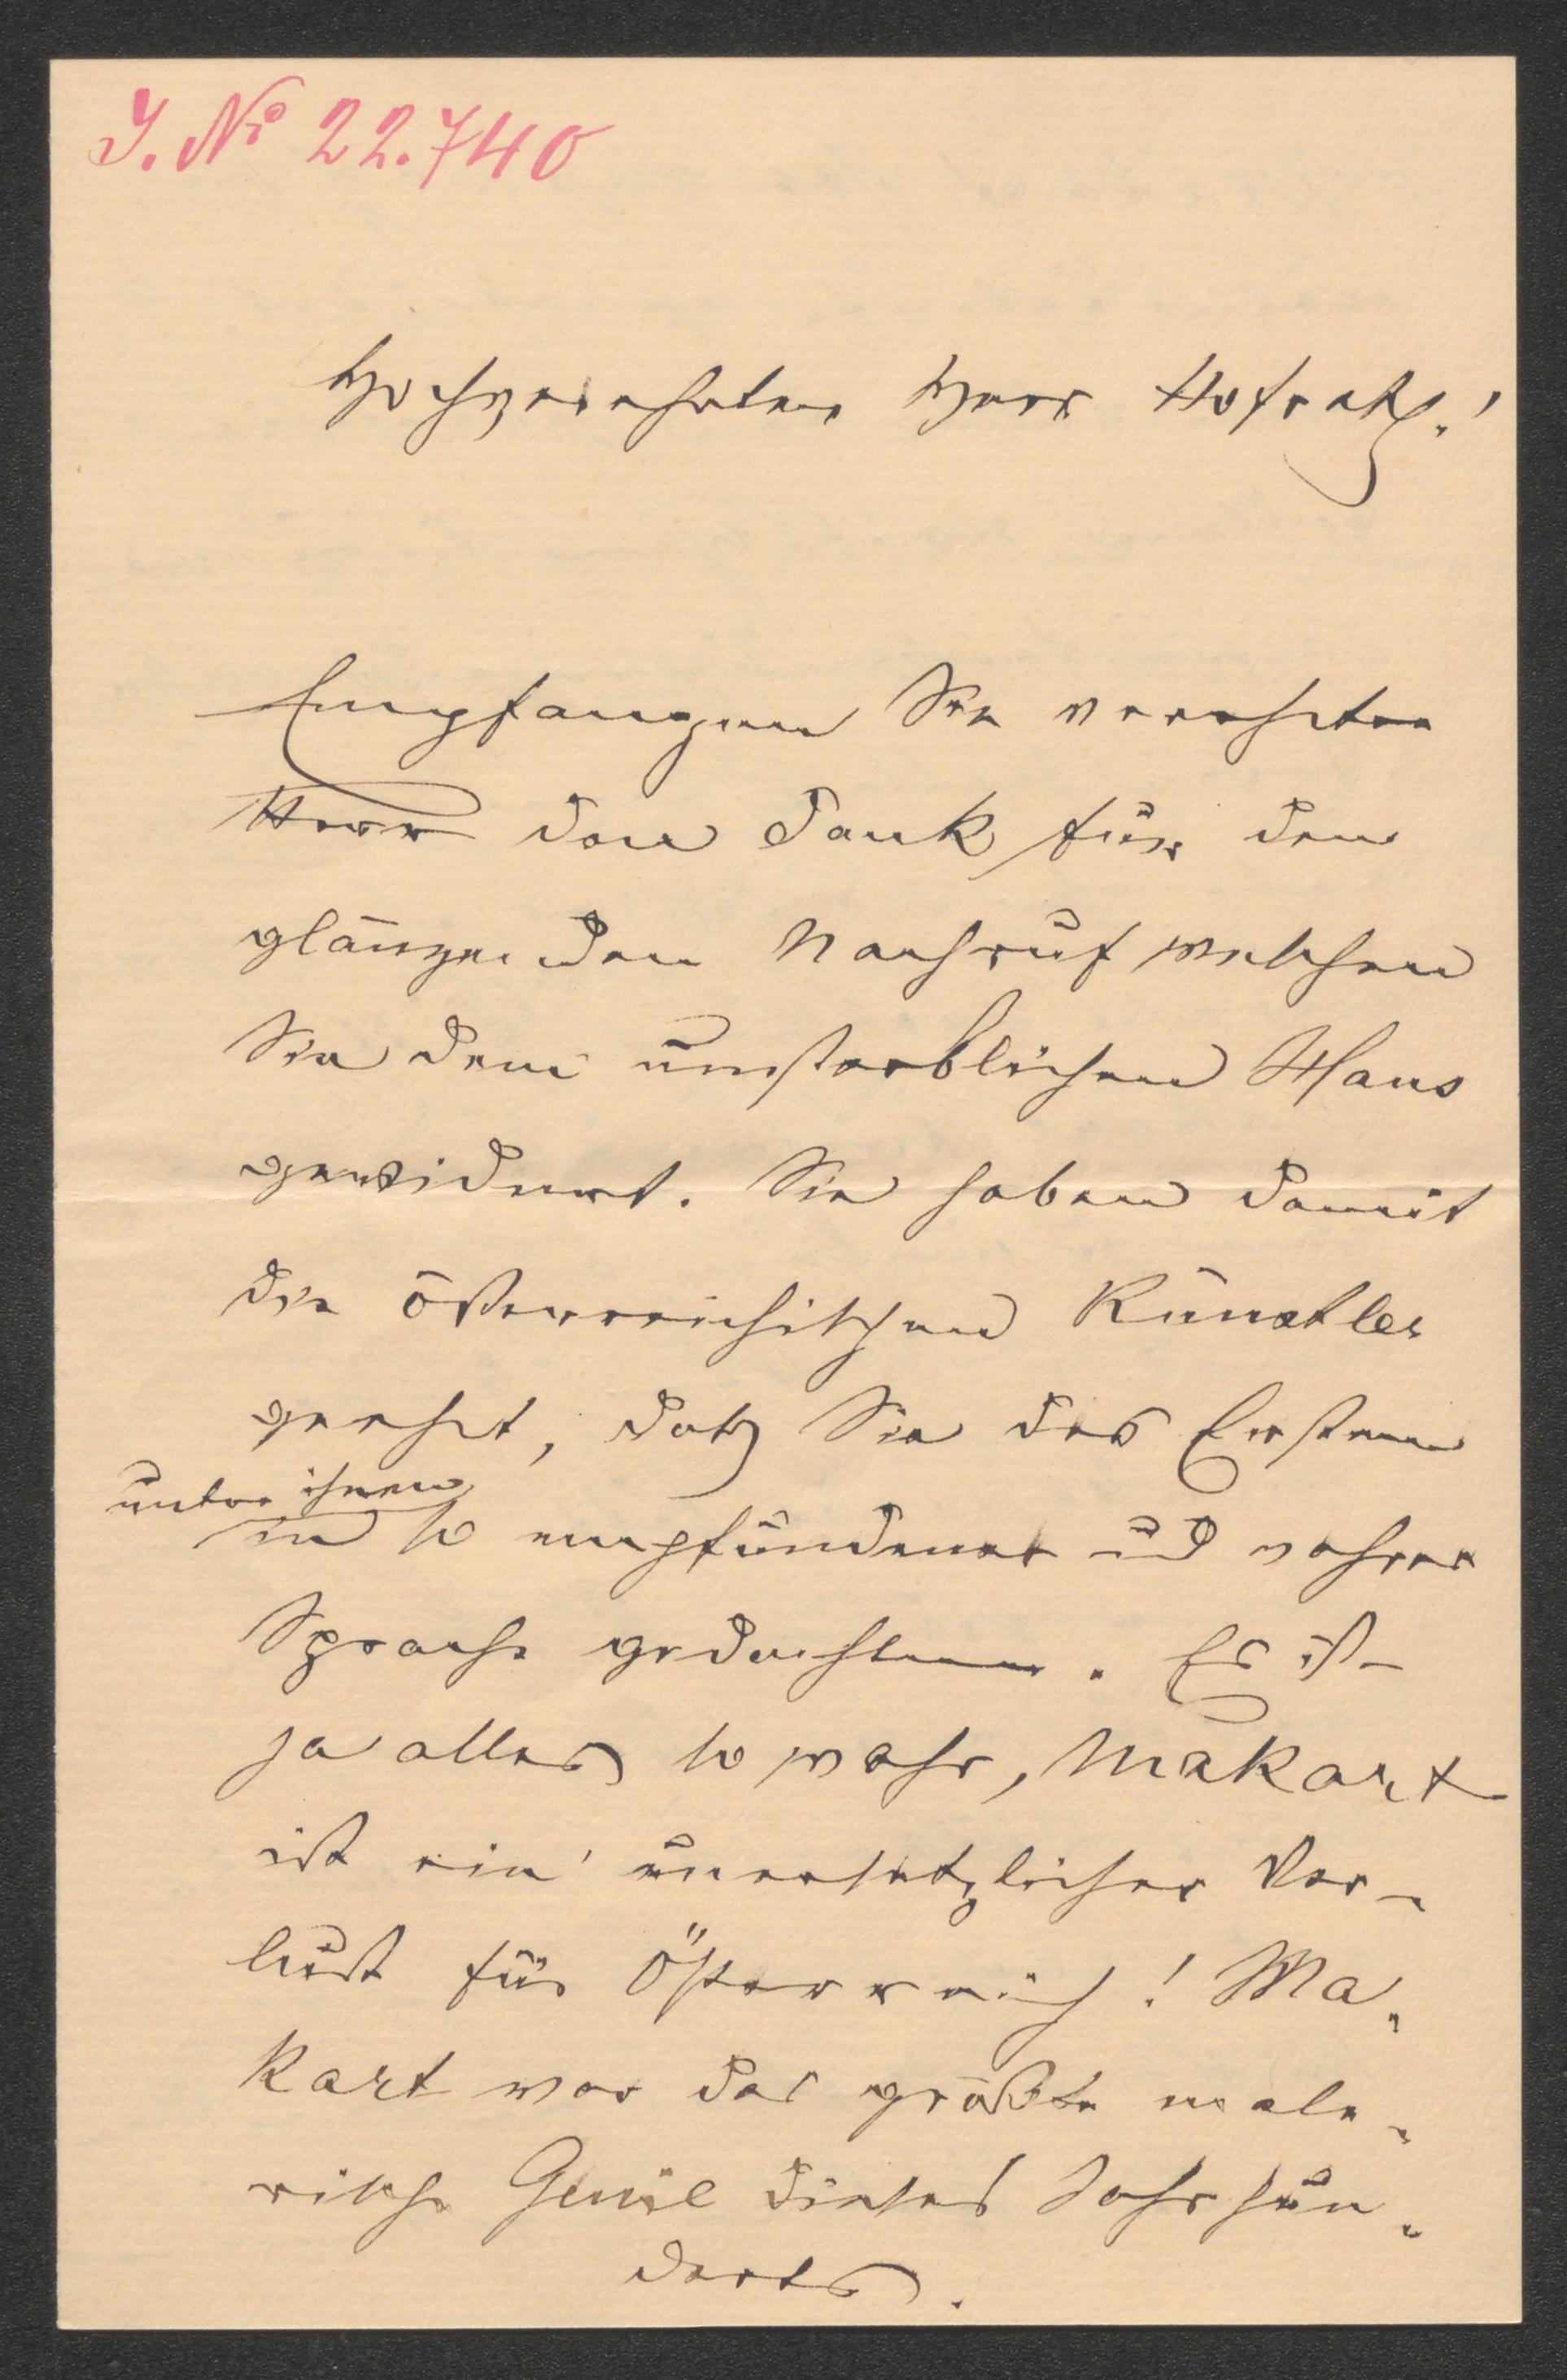 J. No 22.740
Hochverehrter Herr Hofrath!
Empfangen Sie verehrter
Herr den Dank für den
glänzenden Nachruf welchen
Sie dem unsterblichen Hans
gewidmet. Sie haben damit
die österreichischen Künstler
geehrt, daß Sie des Ersten
unter ihnen
in so empfundener und wahrer
Sprache gedachten. Es ist
ja alles so wahr, Makart
ist ein unersetzlicher Ver-
lust für Österreich! Ma-
kart war das größte male-
rische Genie dieses Jahrhun-
derts.